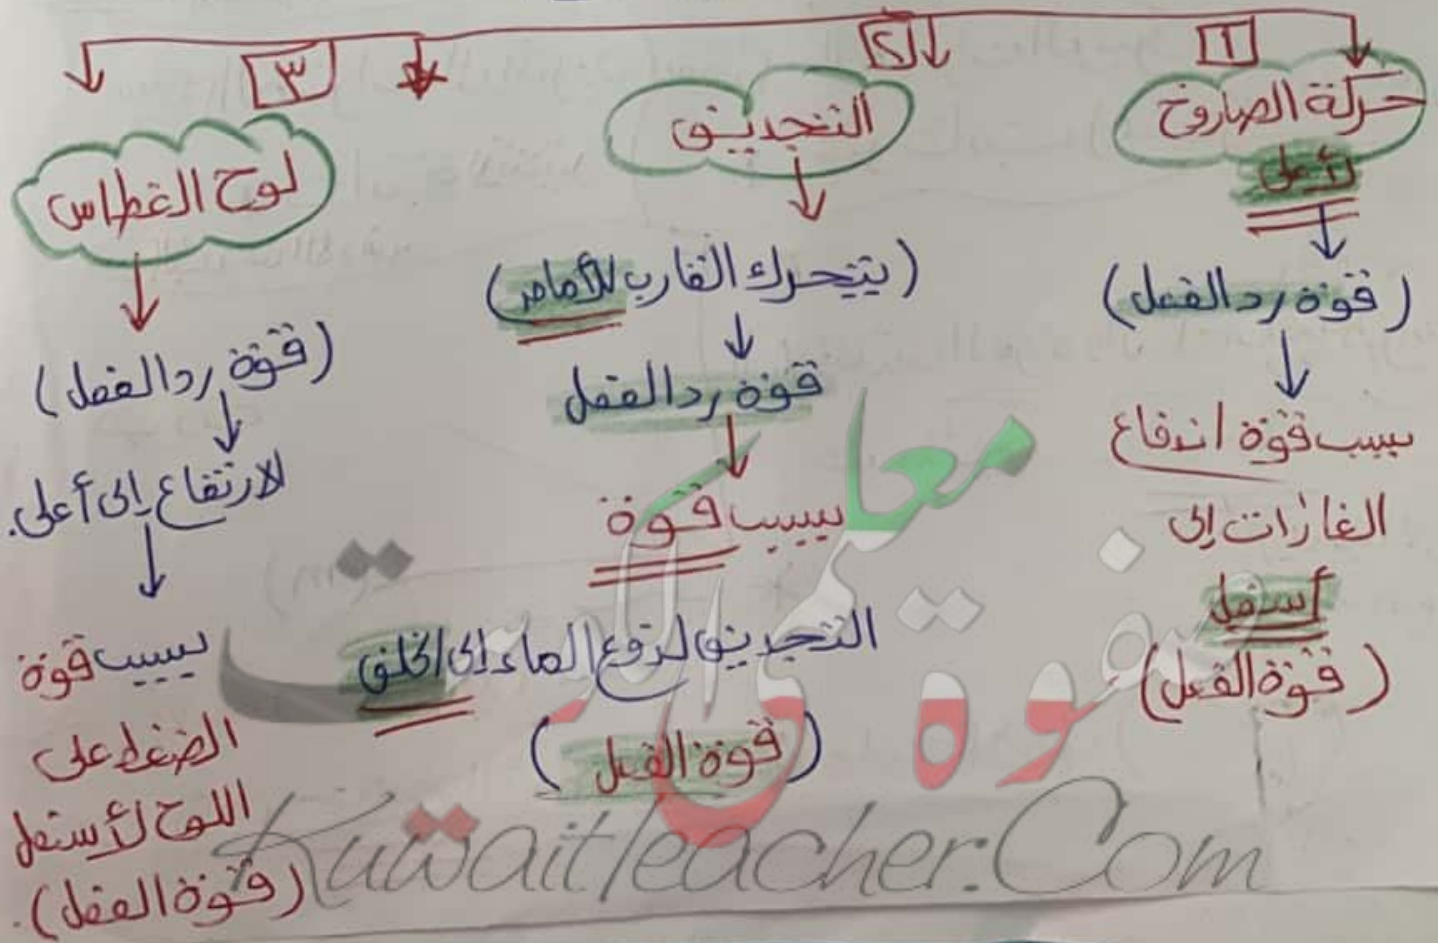 1
حركة الصاروخ
لأعلى
(قوة رد الفعل)
بسبب قوة اندفاع
الغازات إلى
أسفل
(قوة الفعل)
2
التجديف
(يتحرك القارب للأمام)
قوة رد الفعل
بسبب قوة
التجديف لدفع الماء إلى الخلف
(قوة الفعل)
٣
لوح الغطاس
(قوة رد الفعل)
لارتفاع إلى أعلى.
بسبب قوة
الضغط على
اللوح لأسفل
(قوة الفعل).
صفوة معلمى الكويت
KuwaitTeacher.Com